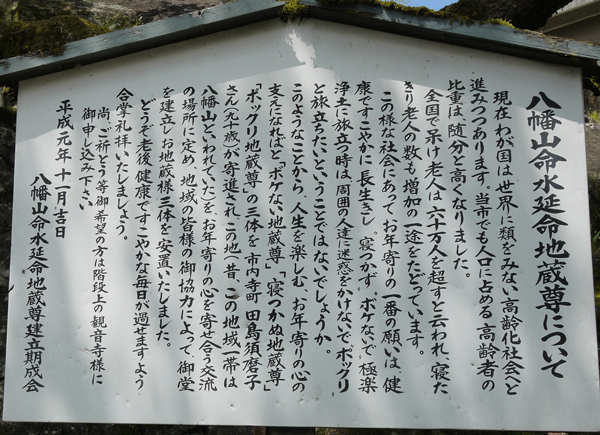 八幡山命水延命地蔵尊について
現在わが国は世界に類をみない高齢化社会へと
進みつつあります。当市でも人口に占める高齢者の
比重は、随分と高くなりました。
全国で呆け老人は六十万人を超すと云われ、寝た
きり老人の数も増加の一途をたどっています。
この様な社会にあってお年寄りの一番の願いは、健
康ですこやかに長生きし、寝つかず、ボケないで、極楽
浄土に旅立つ時は周囲の人達に迷惑をかけないで、ポックリ
と旅立ちたいということではないでしょうか。
このようなことから、人生を楽しむ、お年寄りの心の
支えになればと「ボケない地蔵尊」「寝つかぬ地蔵尊」
「ポックリ地蔵尊」の三体を市内寺町 田島須磨子
さん(九十歳)が寄進され、この地(昔、この地域一帯は
八幡山といわれていた)を、お年寄りの心を寄せ合う交流
の場所に定め、地域の皆様の御協力によって、御堂
を建立しお地蔵様三体を安置いたしました。
どうぞ老後健康ですこやかな毎日が過せますよう
合掌礼拝いたしましょう。
尚、ご祈とう等御希望の方は階段上の観音寺様に
御申し込み下さい。
平成元年十一月吉日
八幡山命水延命地蔵尊建立期成会